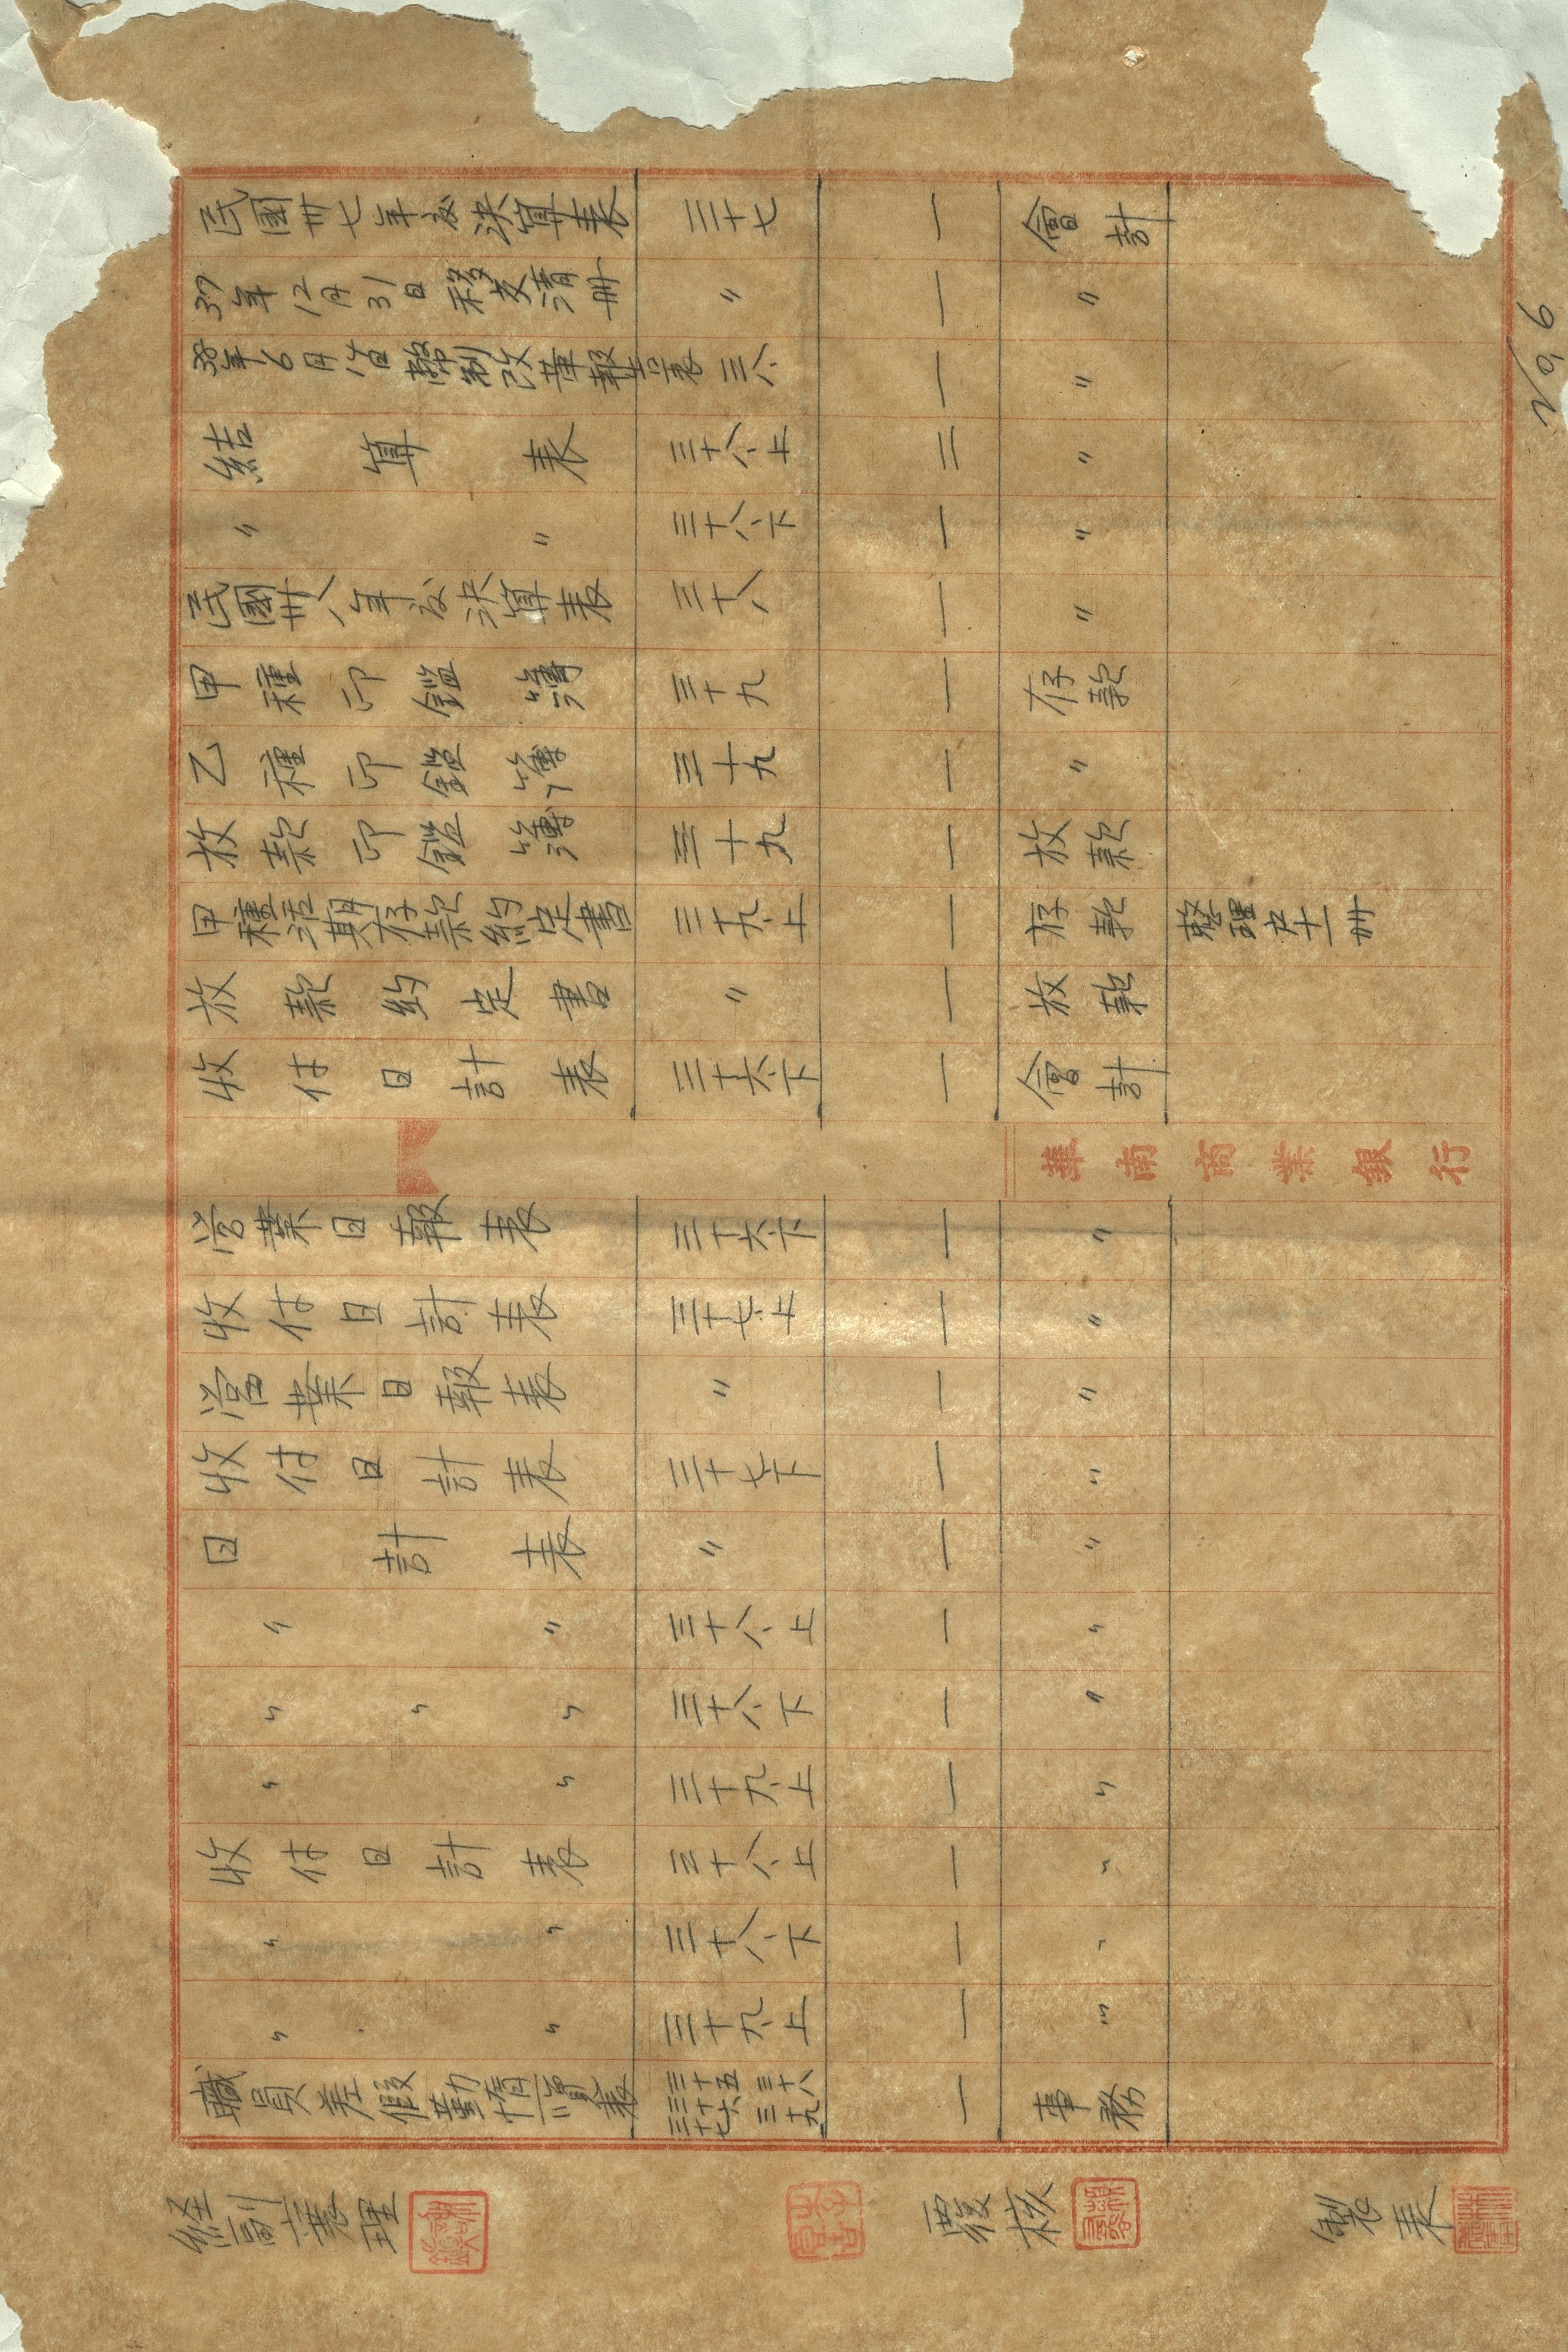 民國卅七年度決算表 三十七 一 會計
37年12月31日 發支清冊 〃 一 〃
38年6月14日幣制改革報告表 三八 一 〃
結算表 三十八上 二 〃
〃 〃 三十八下 一 〃
民國卅八年度決算表 三十八 一 〃
甲種印鑑簿 三十九 一 存款
乙種印鑑簿 三十九 一 〃
放款印鑑簿 三十九 一 放款
甲種活期存款約定書 三十九上 一 存款 整理五十一冊
放款約定書 〃 一 放款
收付日計表 三十六下 一 會計
華南商業銀行
營業日報表 三十六下 一 〃
收付日計表 三十七上 一 〃
營業日報表 〃 一 〃
收付日計表 三十七下 一 〃
日計表 〃 一 〃
〃 〃 三十八上 一 〃
〃 〃 〃 三十八下 一 〃
〃 〃 三十九上 一 〃
收付日計表 三十八上 一 〃
〃 〃 三十八下 一 〃
〃 〃 三十九上 一 〃
職員差假勤惰一覽表 三十五 三十六 三十七 三十八 三十九 一 事務
經副襄理 覆核 製表